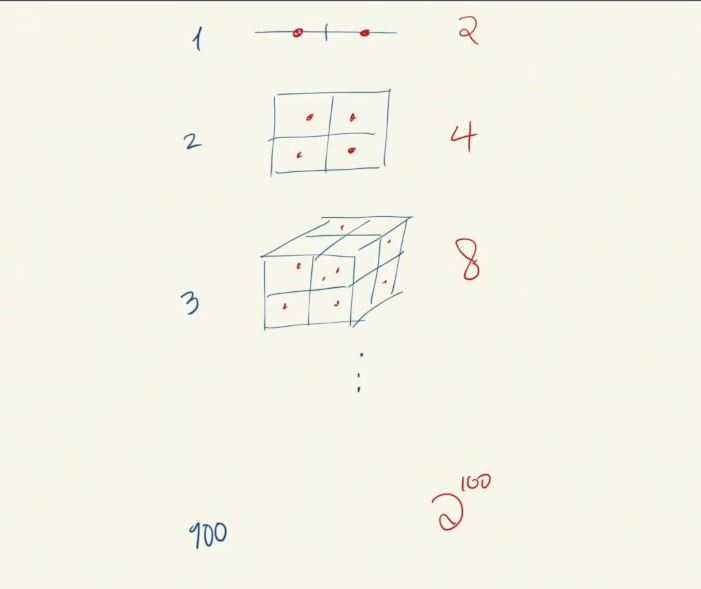 1 2
2 4
3 8
⋮
100 2^100